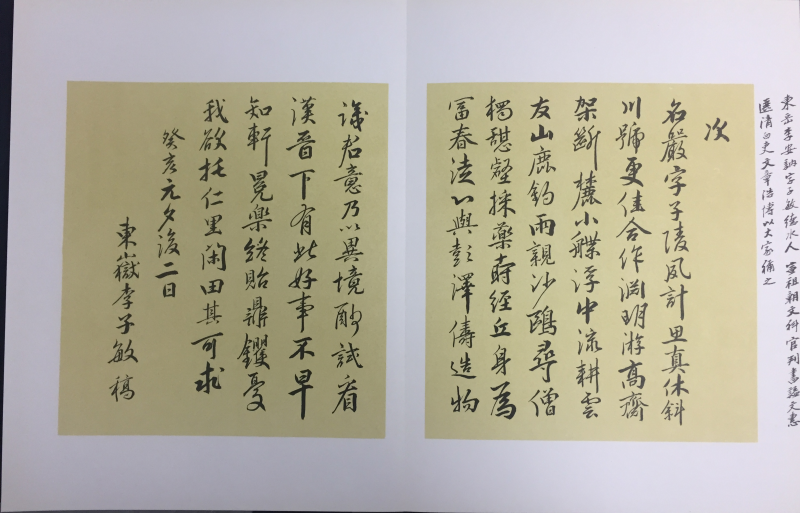 東岳李安訥字子敏德水人 宣祖朝文科官判書諡文惠
選清白吏文章浩博以大家稱之
次
名嚴字子陵夙計思真休斜
川號更佳合作淵明游高齋
架斷麓小艓浮中流耕雲
友山鹿釣雨親沙鷗尋僧
獨憇壑採藥時經丘身爲
富春徒心與彭澤儔造物
識君意乃以異境酧試看
漢晉下有此好事不早
知軒冕樂終貽鼎鑊憂
我欲托仁里閑田其可求
癸亥元夕後二日
東嶽李子敏稿